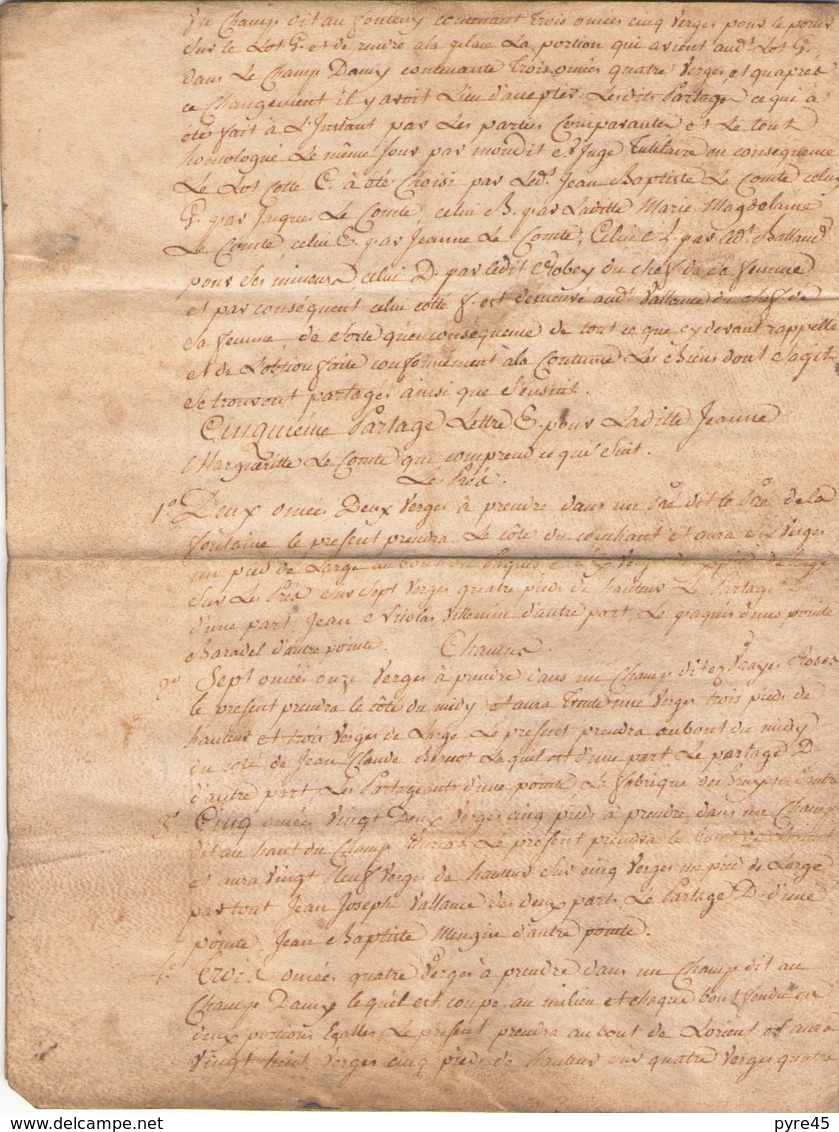 Un Champ dit au fonteny contenant trois omées cinq Verges pour le porter
sur le Lot G. et de rendre a la place La portion qui avient aud.t Lot G.
dans Le Champ Damy contenante trois omées quatre Verges, et qu'aprés
ce Changement il y avoit Lieu d'accepter Lesdits Partage, ce qui à
eté fait à L'Instant par Les parties Comparantes et Le tout
homologué Le même Jour par mondit S.r Juge Tutélaire en consequence
Le Lot Cotte C. à été Choisi par Led.t Jean Baptiste Le Comte celuy
G. par Jacques Le Comte, celui B. par Laditte Marie Magdelaine
Le Comte celui E. par Jeanne Le Comte, Celui A. par led.t Balland
pour Ses mineurs celui D. par ledit Robey du chef de sa femme
et par conséquent celui cotte F. est demeuré aud.t Vallance du Chef de
Sa femme, de Sorte qu'en consequence de tout ce que cy devant rappellé
et de L'obtion faite conformément à la Coutume Les Biens dont Sagit
Se trouvent partagés ainsi que Sensuit.
Cinquième Partage Lettre E. pour Laditte Jeanne
Margueritte Le Comte que comprend ce qui Suit.
Les Préz.
1.o Deux omées Deux Verges à prendre dans un Pré dit le Pré de la
fontaine le present prendra Le côté du couchant et aura six Verges
un pied de Large au bout du paquis
Sur Les Préz sur Sept Verges quatre pieds de hauteur Le Partage
d'une part Jean Nicolas Villemin d'autre part, Le paquis d'une pointe
Baradel d'autre pointe. Champs.
2.o Sept omées onze Verges à prendre dans un Champ dit ez Vrayes Roses
le present prendra le côté du midy et aura trente une Verges trois pieds de
hauteur et trois Verges de Large Le present prendra au bout du midy
du coté de Jean Claude Lequel est d'une part Le partage D.
d'autre part Les Partageants d'une pointe La fabrique d'autre
3.o Cinq omées Vingt Deux Verges cinq pieds à prendre dans un Champ
dit au haut du Champ Le present prendra le bout
et aura Vingt Neuf Verges de hauteur Sur cinq Verges un pied de Large
par tout Jean Joseph Vallance des deux parts Le Partage D. d'une
pointe. Jean Baptiste Mengin d'autre pointe.
4.o Trois omées quatre Verges à prendre dans un Champ dit au
Champ Damy lequel est coupé au milieu et chaque bout fendu en
deux portions Egalles, Le present prendra au bout de Lorient et aura
Vingt huit Verges cinq pieds de hauteur sur quatre Verges quatre
pyre45